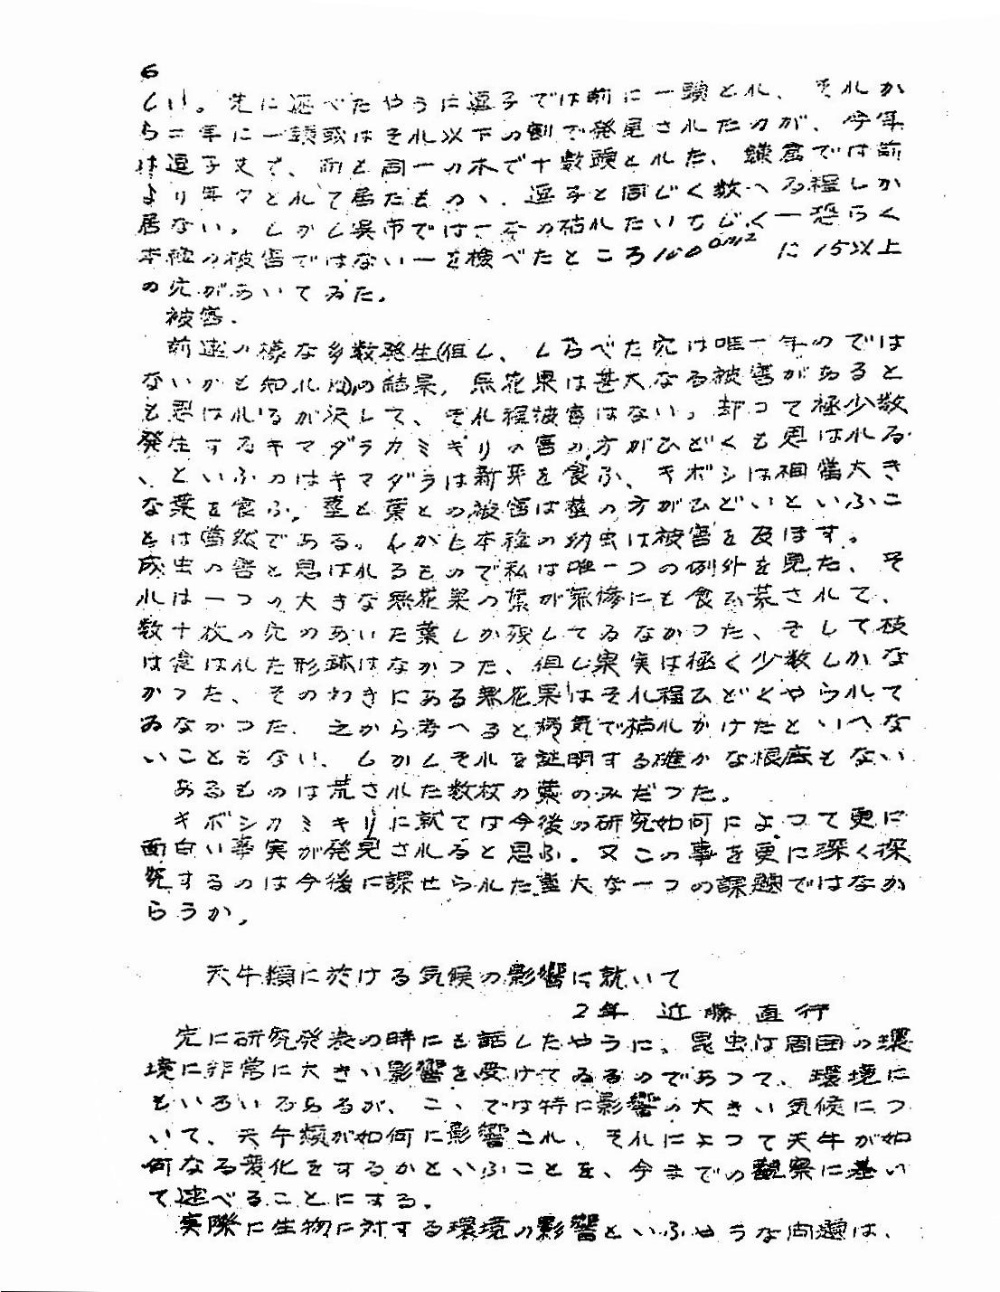 6
しい。先に述べたやうに逗子では前に一頭とれ、それか
ら二年に一頭或はそれ以下の割で発見されたのが、今年
は逗子丈で、而も同一の木で十数頭とれた、鎌倉では前
より年々とれて居たものゝ、逗子と同じく数へる程しか
居ない。しかし呉市では一本の枯れたいちじく一恐らく
本種の被害ではない一を検べたところ100cm²に15以上
の穴があいてゐた。
被害.
前述の様な多数発生(但し、しらべた穴は唯一年のでは
ないかも知れぬ)の結果、無花果は甚大なる被害があると
も思はれるが決して、それ程被害はない。却つて極少数
発生するキマダラカミギリの害の方がひどくも思はれる
、といふのはキマダラは新芽を食ふ、キボシは相当大き
な葉を食ふ。茎と葉との被害は茎の方がひどいといふこ
とは当然である。しかも本種の幼虫は被害を及ぼす。
成虫の害と思はれるもので私は唯一つの例外を見た、そ
れは一つの大きな無花果の葉が無惨にも食ひ荒されて、
数十枚の穴のあいた葉しか残してゐなかつた、そして枝
は食はれた形跡はなかつた、但し果実は極く少数しかな
かつた、そのわきにある無花果はそれ程ひどくやられて
ゐなかつた. 之から考へると病気で枯れかけたといへな
いこともない、しかしそれを証明する確かな根底もない
あるものは荒された数枚の葉のみだつた。
キボシカミキリに就ては今後の研究如何によつて更に
面白い事実が発見されると思ふ。又この事を更に深く探
究するのは今後に課せられた重大な一つの課題ではなか
らうか。
天牛類に於ける気候の影響に就いて
2年 近藤直行
先に研究発表の時にも話したやうに、昆虫は周囲の環
境に非常に大きい影響を受けてゐるのであつて、環境に
もいろいろあるが、こゝでは特に影響の大きい気候につ
いて、天牛類が如何に影響され、それによつて天牛が如
何なる変化をするかといふことを、今までの観察に基い
て述べることにする。
実際に生物に対する環境の影響といふやうな問題は、